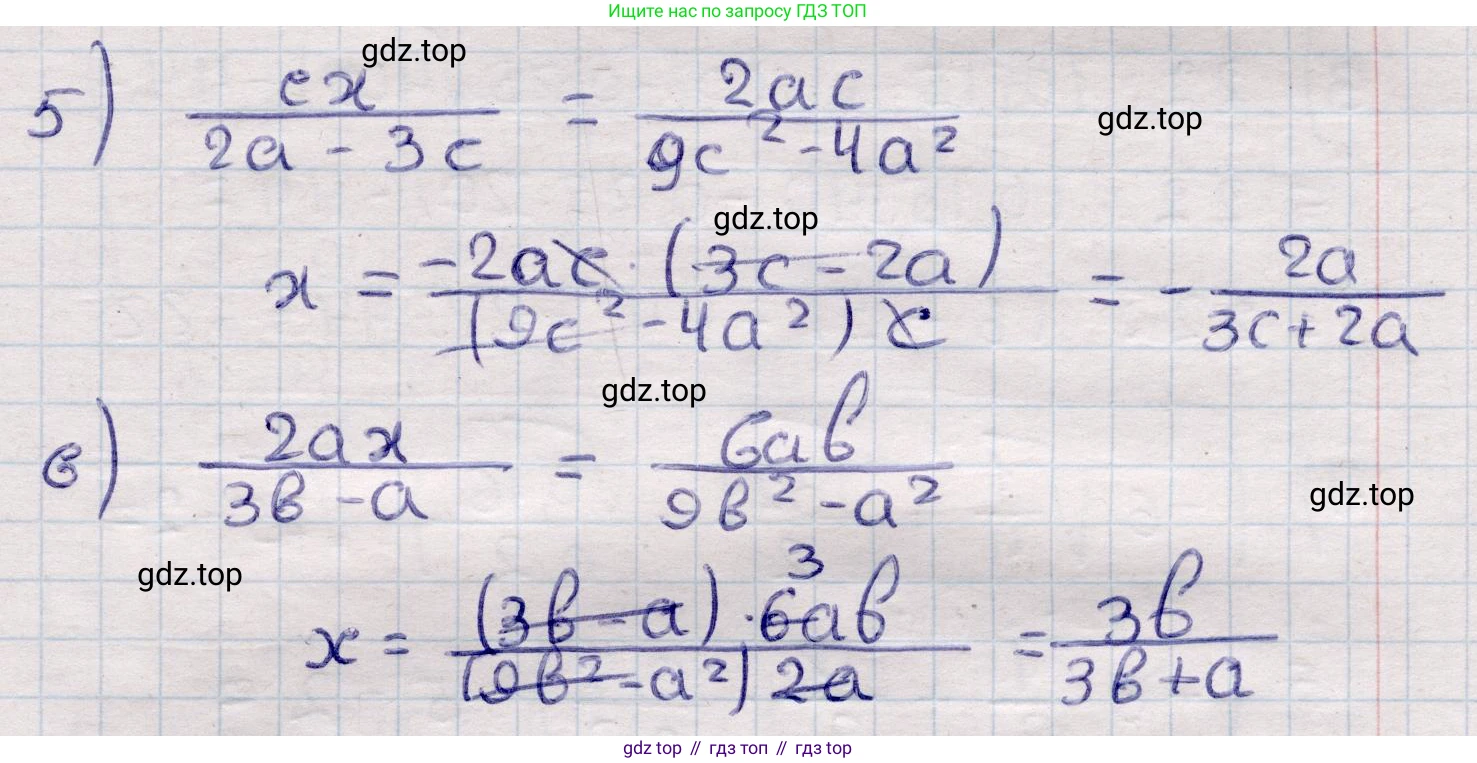 Ищите нас по запросу ГДЗ ТОП
gdz.top
5) cx / (2a - 3c) = 2ac / (9c² - 4a²)
gdz.top
gdz.top
x = -2ac · (3c - 2a) / ((9c² - 4a²) c) = - 2a / (3c + 2a)
gdz.top
в) 2ax / (3b - a) = 6ab / (9b² - a²)
gdz.top
gdz.top
3
x = (3b - a) · 6ab / ((9b² - a²) 2a) = 3b / (3b + a)
gdz top // гдз топ // гдз top